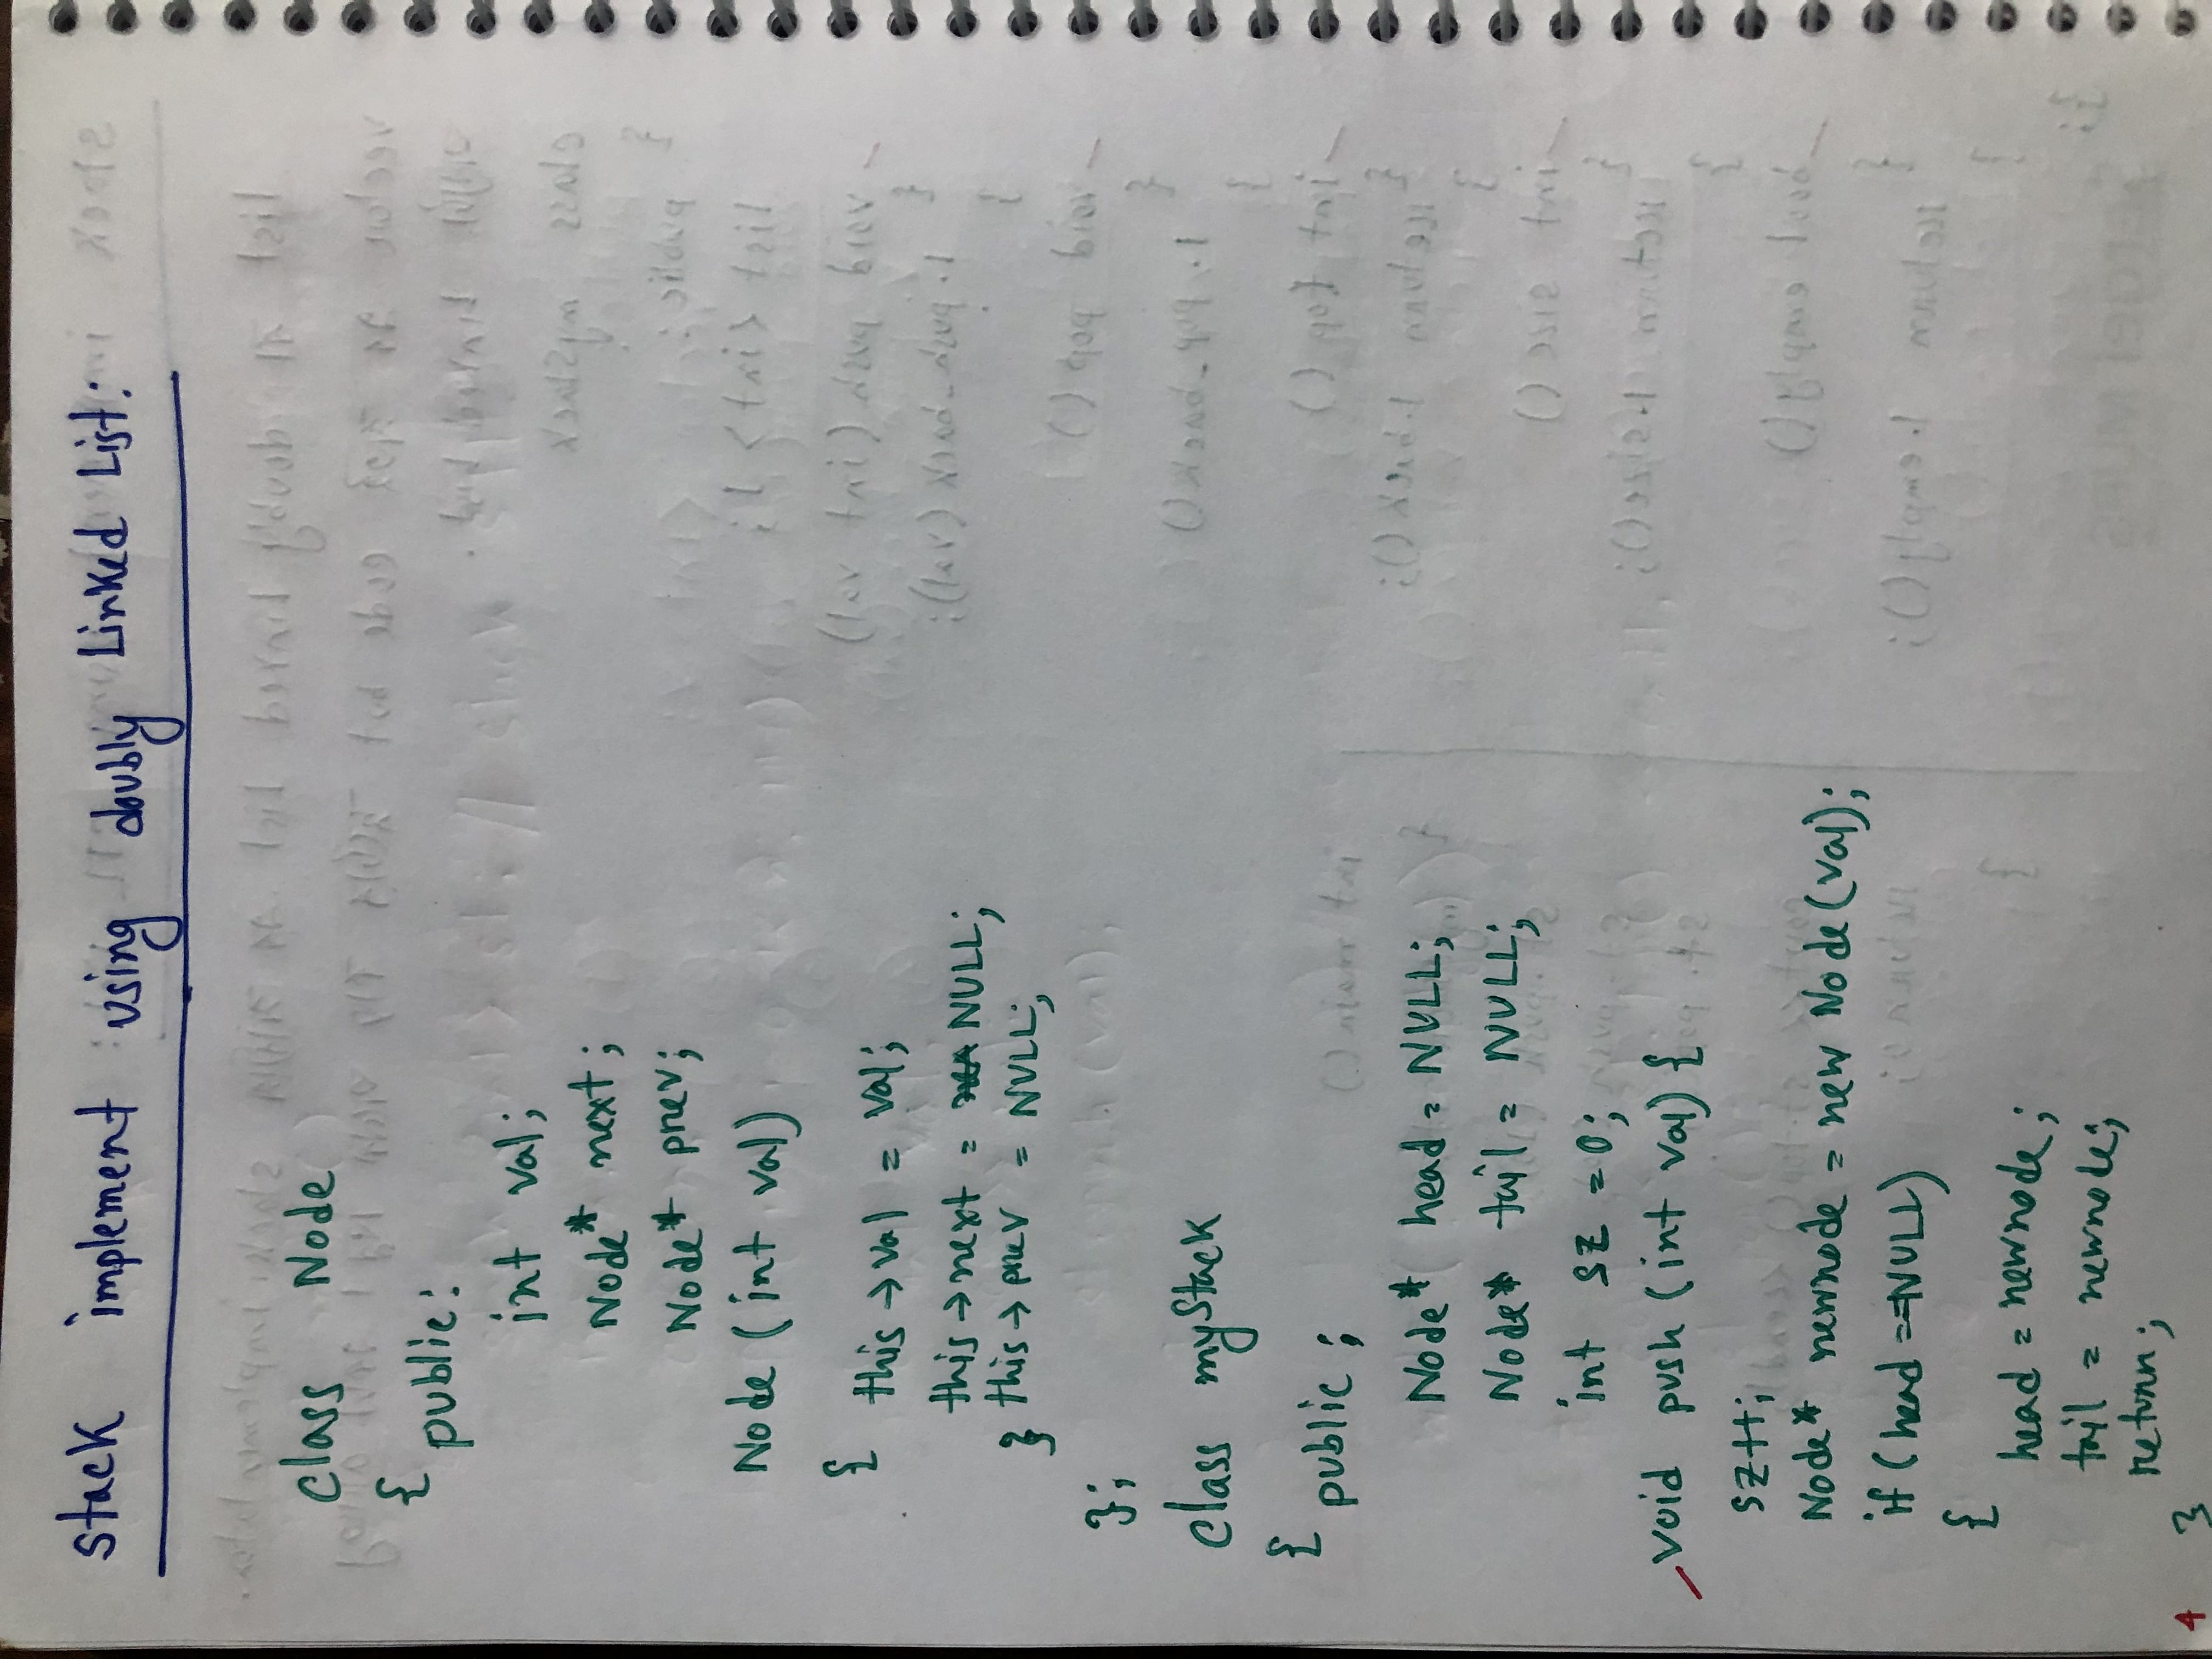 stack implement using doubly Linked List:
class Node
{ public:
int val;
Node* next;
Node* prev;
Node (int val)
{ this→val = val;
this→next = NULL;
} this→prev = NULL;
};
class myStack
{ public ;
Node* head = NULL;
Node* tail = NULL;
int sz = 0;
void push (int val) {
sz++;
Node* newnode = new Node(val);
if (head ==NULL)
{
head = newnode;
tail = newnode;
return;
4 }